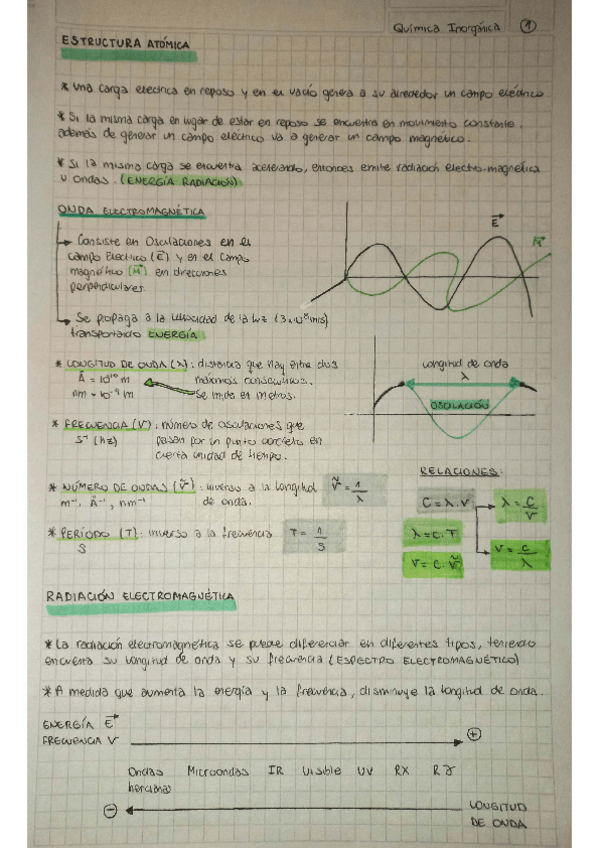 Química Inorgánica ①
ESTRUCTURA ATÓMICA
* Una carga electrica en reposo y en el vacío genera a su alrededor un campo eléctrico
* Si la misma carga en lugar de estar en reposo se encuentra en movimiento constante,
además de generar un campo eléctrico va a generar un campo magnético.
* Si la misma carga se encuentra acelerando, entonces emite radiación electro-magnética
u ondas. (ENERGÍA RADIACIÓN)
ONDA ELECTROMAGNÉTICA
→ Consiste en Oscilaciones en el
campo Electrico (E→) y en el campo
magnético (M→) en direcciones
perpendiculares.
E→
M→
→ Se propaga a la velocidad de la luz (3x10⁸m/s)
transportando ENERGÍA.
* LONGITUD DE ONDA (λ): distancia que hay entre dos
Å = 10¹⁰ m
máximos consecutivos.
nm = 10⁻⁹ m
Se mide en metros.
Longitud de onda
λ
OSCILACIÓN
* FRECUENCIA (V): número de oscilaciones que
S⁻¹ (hz)
pasan por un punto concreto en
cierta unidad de tiempo.
RELACIONES:
* NÚMERO DE ONDAS (Ṽ): inverso a la longitud
m⁻¹, Å⁻¹, nm⁻¹
de onda.
Ṽ = 1/λ
C = λ. V
λ = C/V
* PERÍODO (T): inverso a la frecuencia
S
T = 1/S
λ = C. T
V = C. Ṽ
V = C/λ
RADIACIÓN ELECTROMAGNÉTICA
* La radiación electromagnética se puede diferenciar en diferentes tipos, teniendo
en cuenta su longitud de onda y su frecuencia (ESPECTRO ELECTROMAGNÉTICO)
* A medida que aumenta la energía y la frecuencia, disminuye la longitud de onda.
ENERGÍA E→
FRECUENCIA V
⊕
Ondas Microondas IR Visible UV RX Rγ
hercianas
⊖
LONGITUD
DE ONDA